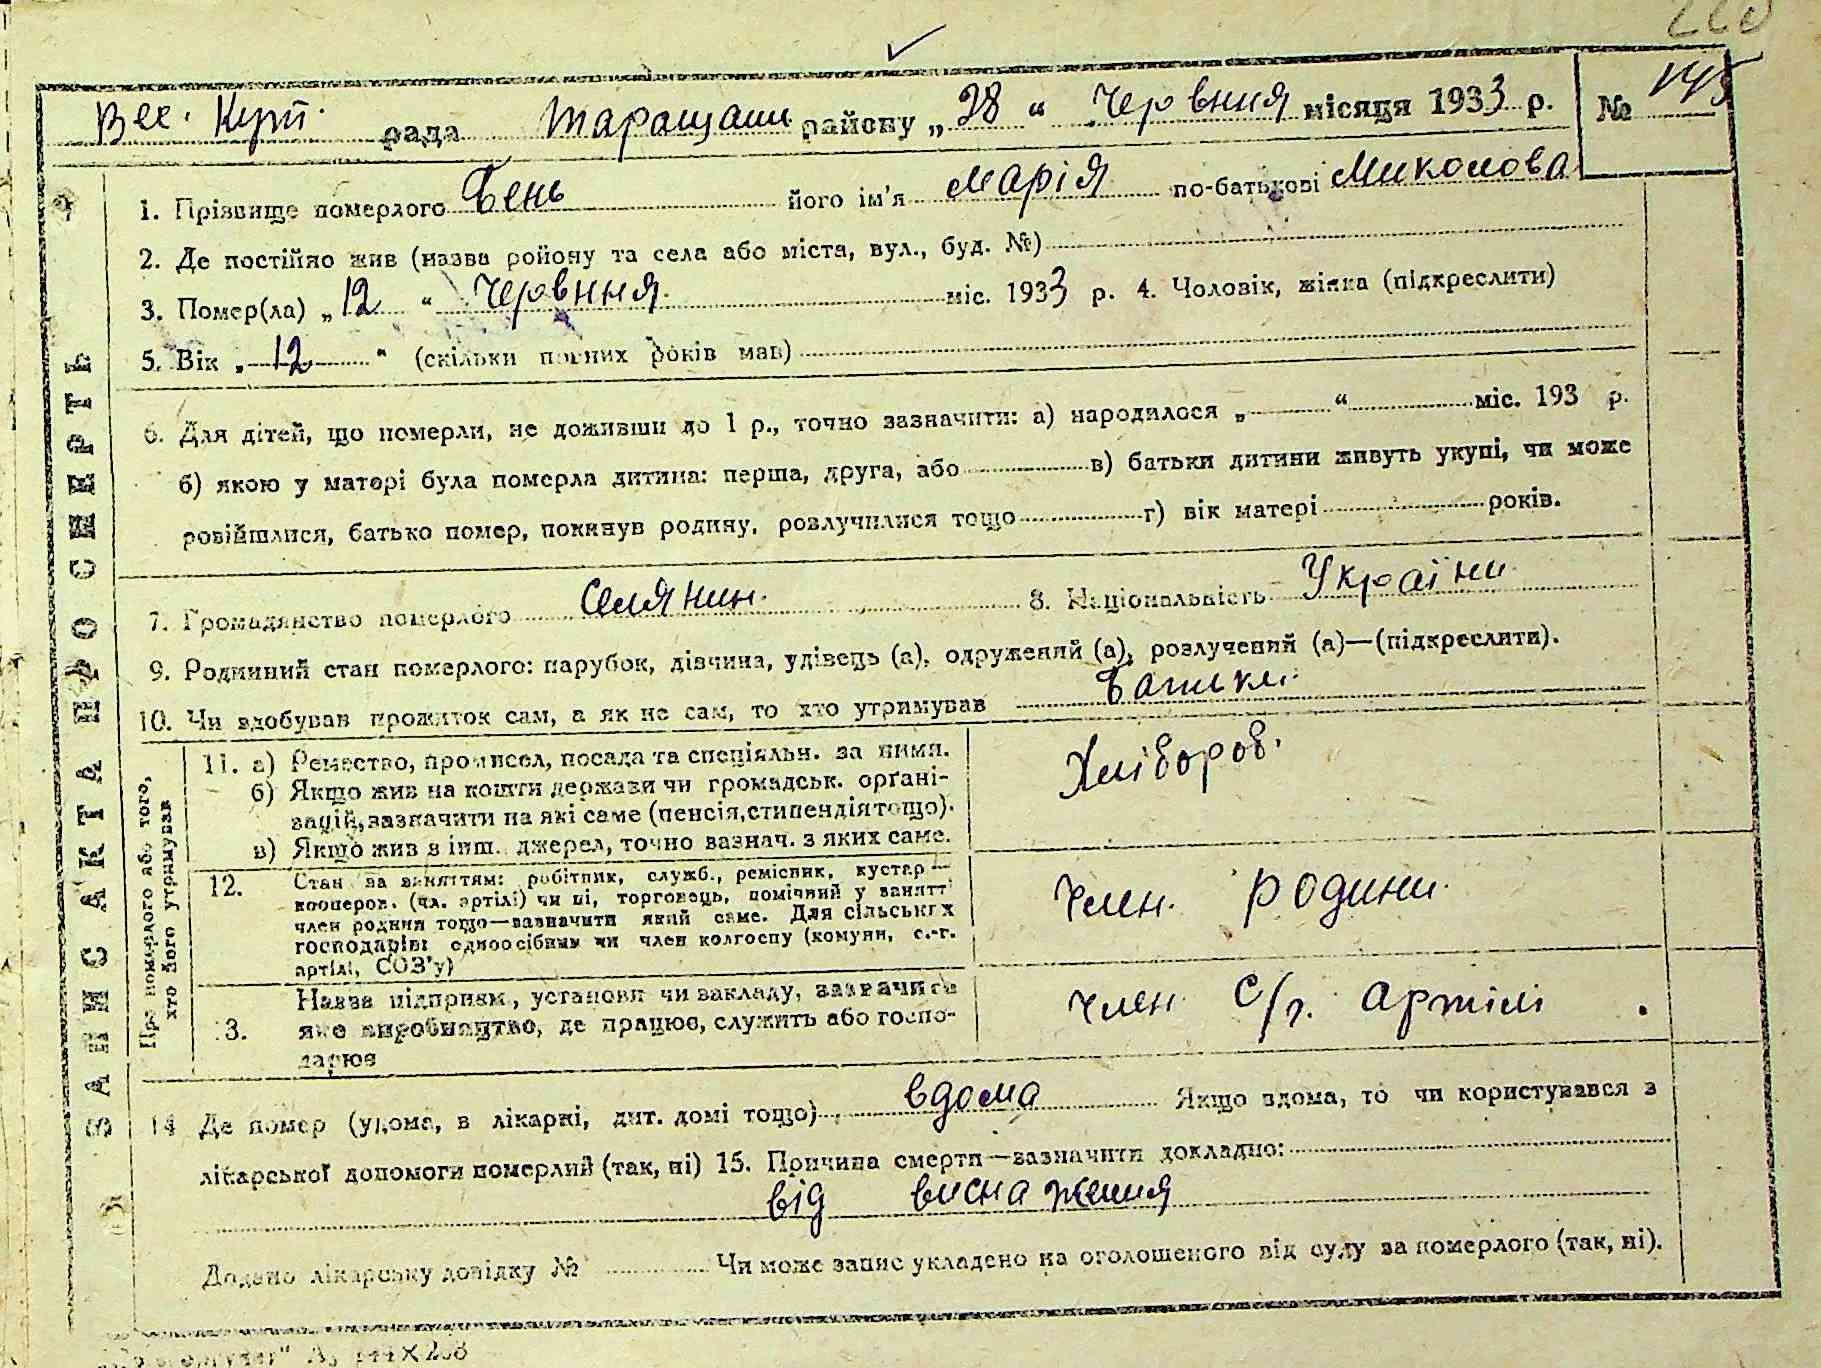 220
Вел. Кут. рада Таращан району „28“ Червння місяця 1933 р. № 145
1. Прізвище померлого Бень його ім'я Марія по-батькові Миколова
2. Де постійно жив (назва району та села або міста, вул., буд. №)
3. Помер(ла) „12“ Червння міс. 1933 р. 4. Чоловік, жінка (підкреслити)
5. Вік „12“ (скільки повних років мав)
6. Для дітей, що померли, не доживши до 1 р., точно зазначити: а) народилося „ “ міс. 193 р.
б) якою у матері була померла дитина: перша, друга, або в) батьки дитини живуть укупі, чи може
розійшлися, батько помер, покинув родину, розлучилися тощо г) вік матері років.
7. Громадянство померлого селянин. 8. Національність України
9. Родинний стан померлого: парубок, дівчина, удівець (а), одружений (а), розлучений (а)—(підкреслити).
10. Чи здобував прожиток сам, а як не сам, то хто утримував Батьки.
ЗАПИС АКТА ПРО СМЕРТЬ
Про померлого або того,
хто його утримував
11. а) Ремество, промисел, посада та спеціяльн. за ними. Хлібороб.
б) Якщо жив на кошти держави чи громадськ. орґані-
зацій, зазначити на які саме (пенсія, стипендія тощо).
в) Якщо жив з інш. джерел, точно зазнач. з яких саме.
12. Стан за заняттям: робітник, служб., ремісник, кустар—
кооперов. (чл. артілі) чи ні, торговець, помічний у занятті
член родини тощо—зазначити який саме. Для сільських
господарів: одноосібник чи член колгоспу (комуни, с.-г.
артілі, СОЗ'у)
Член. родини.
13. Назва підприєм., установи чи закладу, зазначити
яке виробництво, де працює, служить або госпо-
дарює
Член С/г. артілі
14 Де помер (удома, в лікарні, дит. домі тощо) вдома Якщо вдома, то чи користувався з
лікарської допомоги померлий (так, ні) 15. Причина смерти—зазначити докладно:
від виснаження
Додано лікарську довідку № Чи може запис укладено на оголошеного від суду за померлого (так, ні).